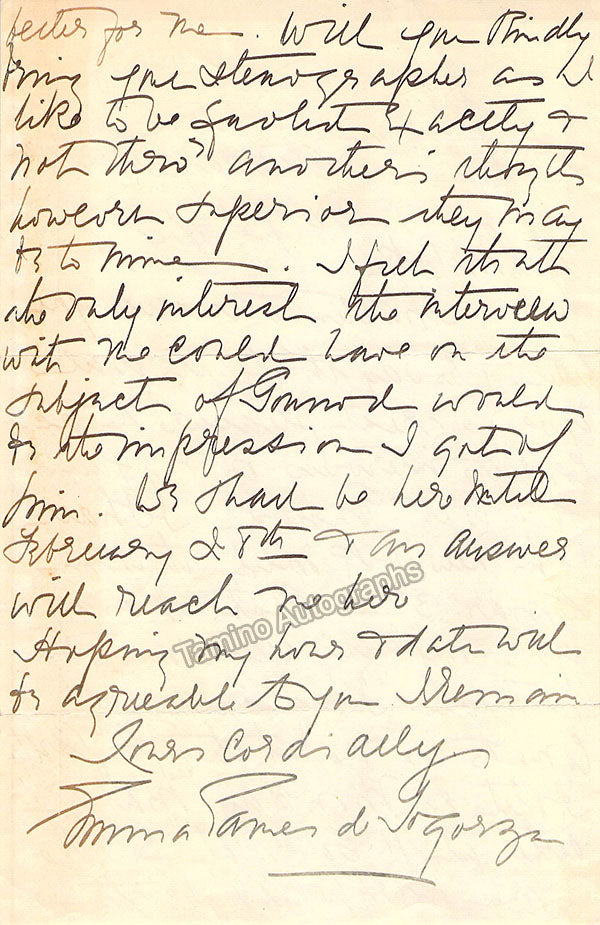 better for me. Will you kindly
bring your stenographer as I
like to be quoted exactly &
not thro' another's thoughts
however superior they may
be to mine. I feel that
the only interest the interview
with me could have on the
subject of Gounod would
be the impression I got of
him. We shall be here until
February 28th & an answer
will reach me here
Hoping my hour & date will
be agreeable to you I remain
Yours cordially
Emma Eames de Gogorza
Tamino Autographs